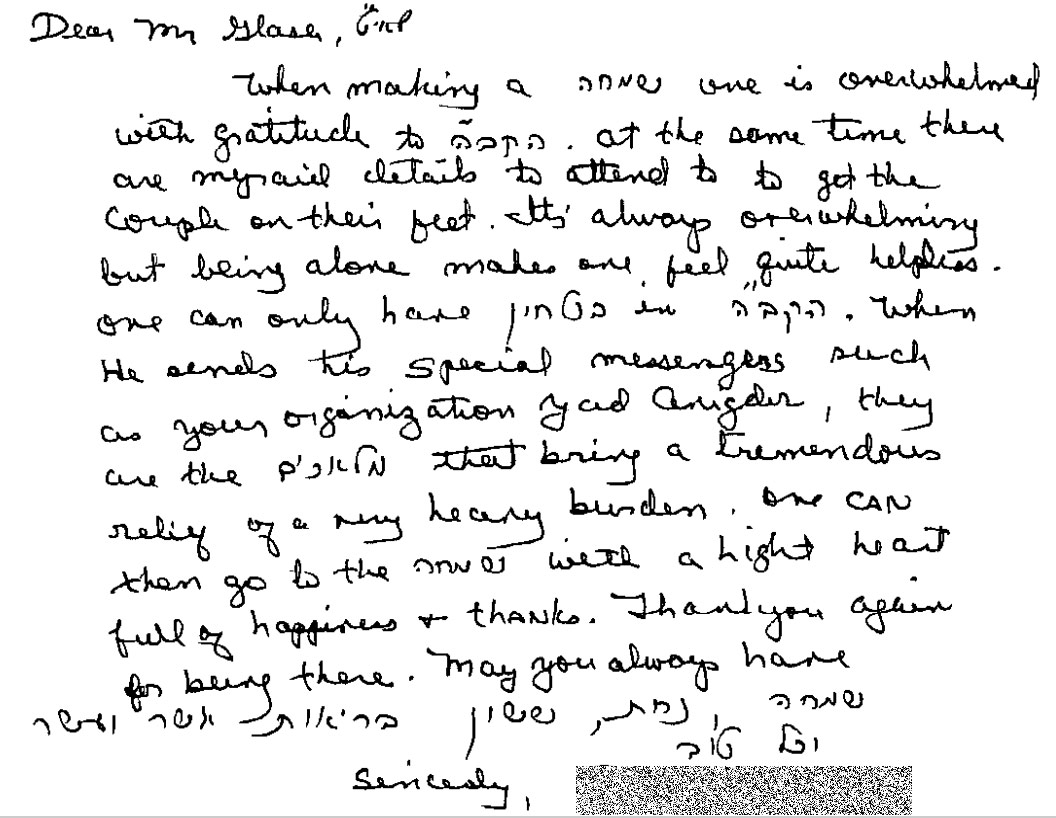 Dear Mr Glaser, שליט"א
When making a שמחה one is overwhelmed
with gratitude to הקב"ה. At the same time there
are myraid details to attend to to get the
couple on their feet. Its' always overwhelming
but being alone makes one feel quite helpless.
One can only have בטחון in הקב"ה. When
He sends his special messengers such
as your organization Yad Avigdor, they
are the מלאכים that bring a tremendous
relief of a very heavy burden. One CAN
then go to the שמחה with a light heart
full of happiness + thanks. Thank you again
for being there. May you always have
שמחה, נחת, ששון בריאות אשר ועשר
וכל טוב
Sincerely,